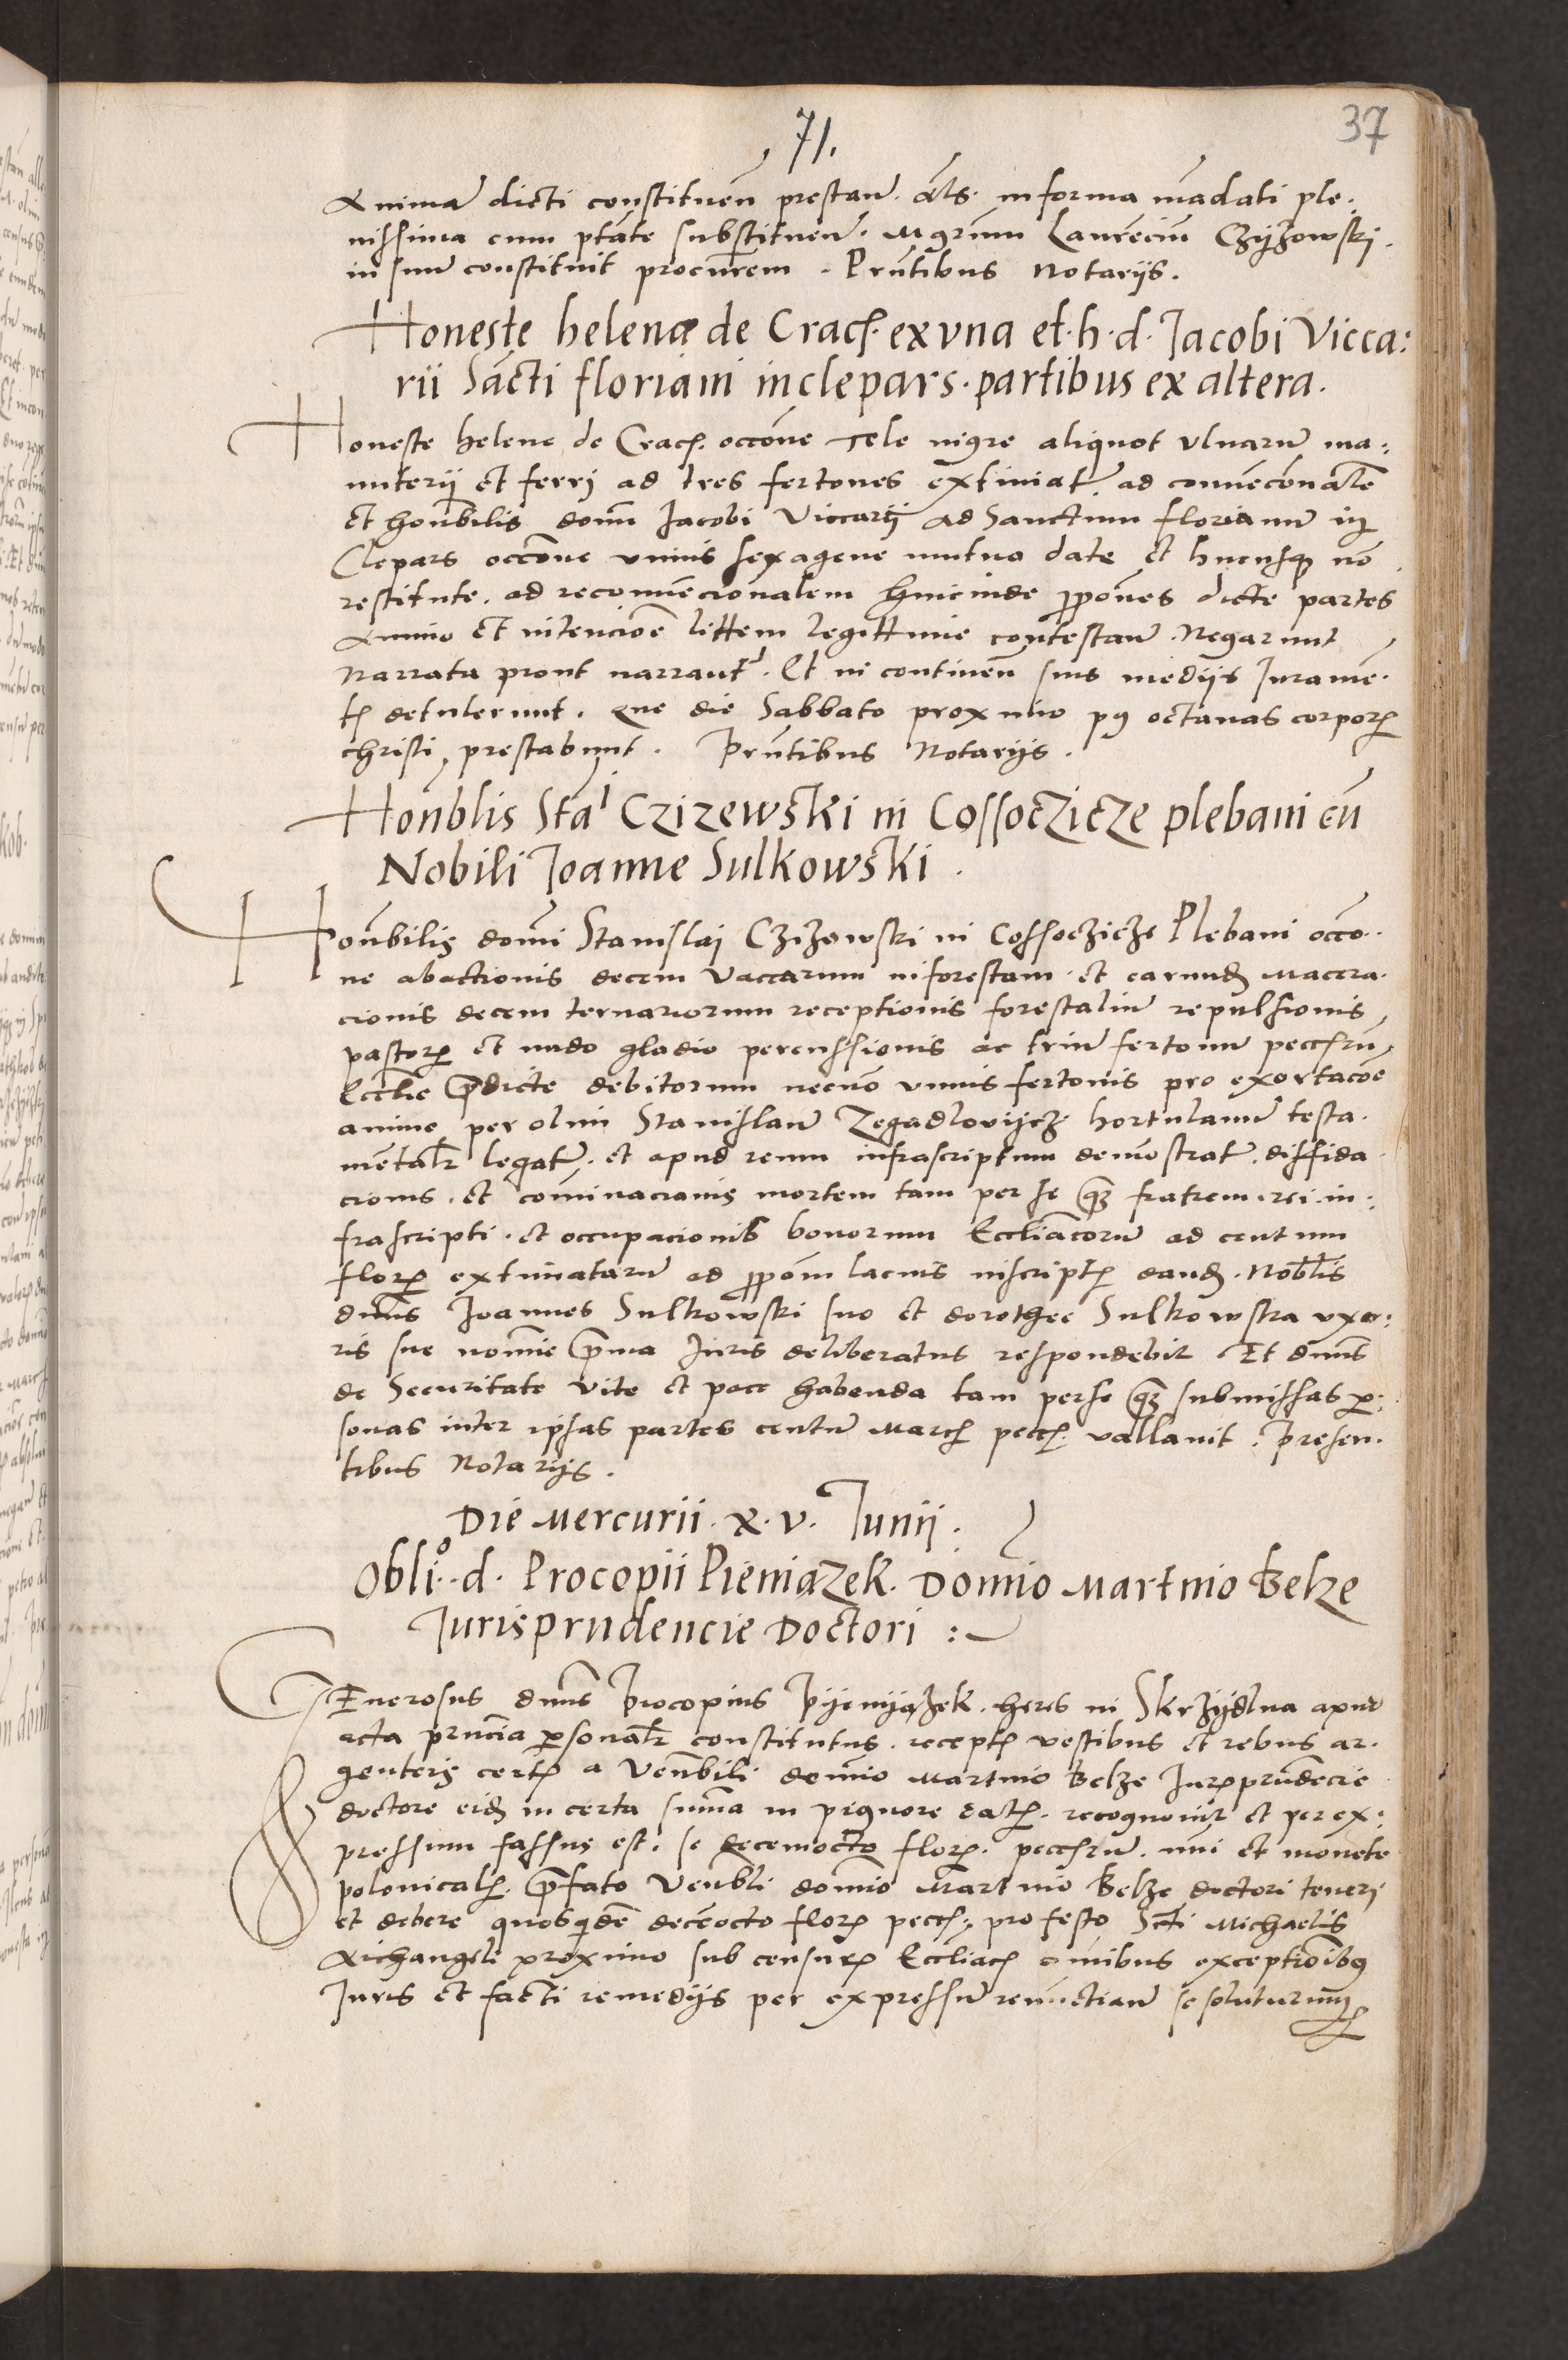 71.
37
Animam dicti constituen̄ prestan̄. Als. in forma mādati ple.
nissima cum ptāte substituen̄. Mgrūm Laurēciū Czyzowski.
in suū constituit procurēm. Prn̄tibus Notarijs.
Honeste helenæ de Crac. ex vna et. h. d. Jacobi Vicca:
rii Sācti floriani in clepars. partibus ex altera.
Honeste helene de Crac. occōne Tele nigre aliquot vlnarū ma:
nuterij et ferrj ad tres fertones extimat. ad conuēcōnalē
et honbilis domī Jacobi Viccarij ad Sanctum florianum in
Clepars occōne vnius sexagene mutuo date et hucusq nō
restitute. ad reconuēcionalem hincinde ppōnes dicte partes
Animo et intencioē littem legittime contestan̄. Negarunt
Narrata prout narrant. Et in continen̄ suis medijs Jurame.
t detulerunt. Que die Sabbato proximo p9 octauas corpor
christi, prestabunt. Prn̄tibus Notarijs.
Honblis Stāi Czizewski in Cossoczicze plebani cū
Nobili Joanne Sulkowski.
Honbilis domī Stanislai Czizewski in Cossoczicze Plebani occo..
ne abactionis decem vaccarum in forestam. et earund macera.
cionis decem ternariorum receptionis forestaliū repulsionis
pastor et nudo gladio percussionis ac triū fertonū peccsrū
Eccłie pdicte debitorum necnō vnius fertonis pro exortacōe
anime per olim Stanislaū Zegadlovijcz hortulanū testa.
mentalr legat. et apud reum infrascriptum demōstrat. diffida
cionis. et cōminacionis mortem tam per se q̄ fratrem rei in:
frascripti. et occupacionis bonorum Eccliacorū ad centum
flor extimatarū ad ppōm lacius inscript dand. Nobłis
dnūs Joannes Sulkowski suo et dorothee Sulkowska vxo:
ris sue noīme pma Juris deliberatus respondebit Et dnūs
de Securitate vite et pace habenda tam per se q̄ submissas p:
sonas inter ipsas partes centū Marc pecc. vallauit. Presen.
tibus Notarijs.
Die Mercurii. x. v. Junij.
Oblio. d. Procopii Pieniązek. Domīo Martino Belze
Jurisprudencie Doctori :~
GEnerosus dnūs Procopius Pijenijązek. heres in Skrzijdlna apud
acta prn̄cia psonalr constitutus. recept vestibus et rebus ar.
genteis cert a Venbili domīo Martino Belze Jurprudēcie
doctore eid in certa sūma in pignore dat. recognouit et per ex:
pressum fassus est. se decemocto flor. peccsrū. nūi et monete
polonical. pfato Venbli domīo Martino Belze doctori teneri
et debere quosqdē decēocto flor pecc. pro festo Scti Michaelis
Archangeli proximo sub censur Eccliac omībus exceptionibus
Juris et facti remedijs per expressū renūctian̄ se soluturum